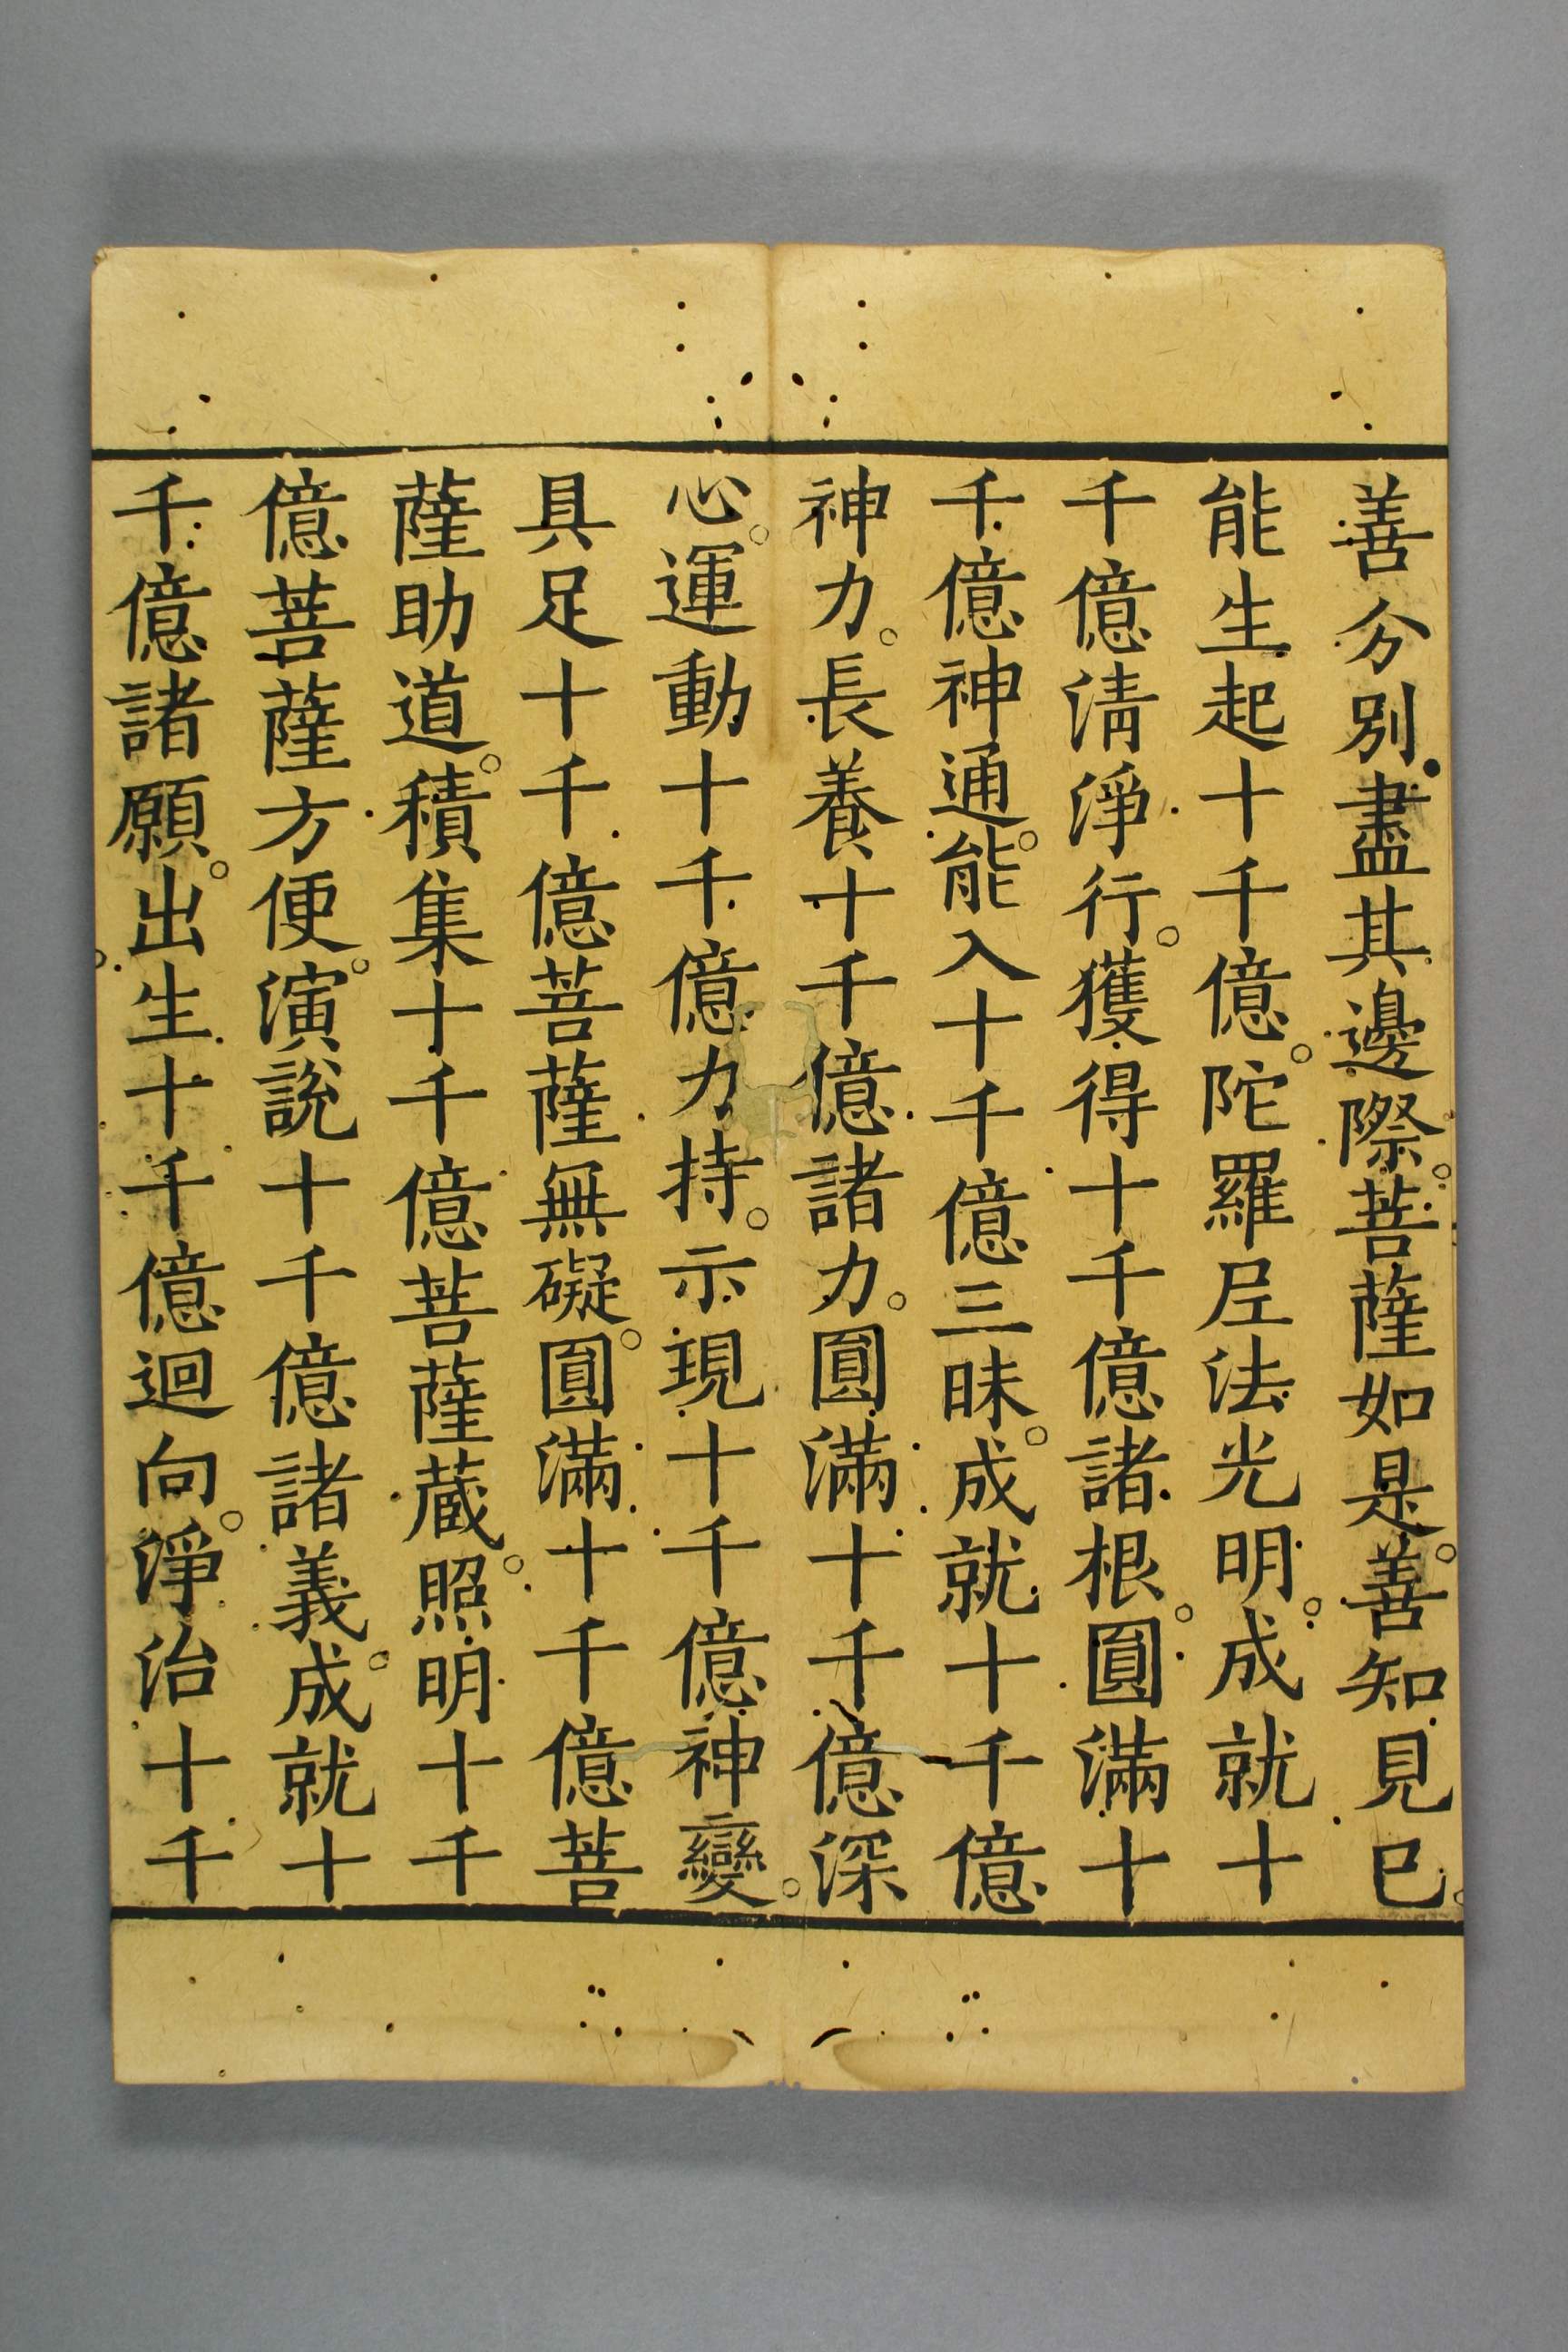 善分別盡其邊際。菩薩如是。善知見巳。
能生起十千億。陀羅尼法光明。成就十
千億清淨行。獲得十千億諸根。圓滿十
千億神通。能入十千億三昧。成就十千億
神力。長養十千億諸力。圓滿十千億深
心。運動十千億力持。示現十千億神變。
具足十千億菩薩無礙。圓滿十千億菩
薩助道。積集十千億菩薩蔵。照明十千
億菩薩方便。演說十千億諸義。成就十
千億諸願。出生十千億迴向。淨治十千